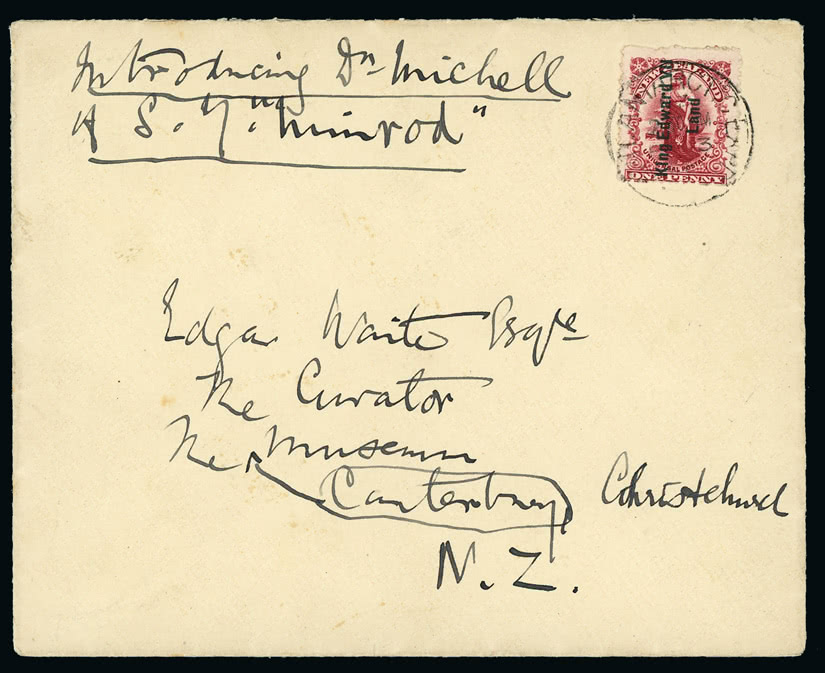 Introducing Dr Michell
of S.Y. "Nimrod"
NEW ZEALAND
King Edward VII
Land
UNIVERSAL POSTAGE
ONE PENNY
Edgar Waite Esqre
The Curator
The Museum
Canterbury Christchurch
N.Z.